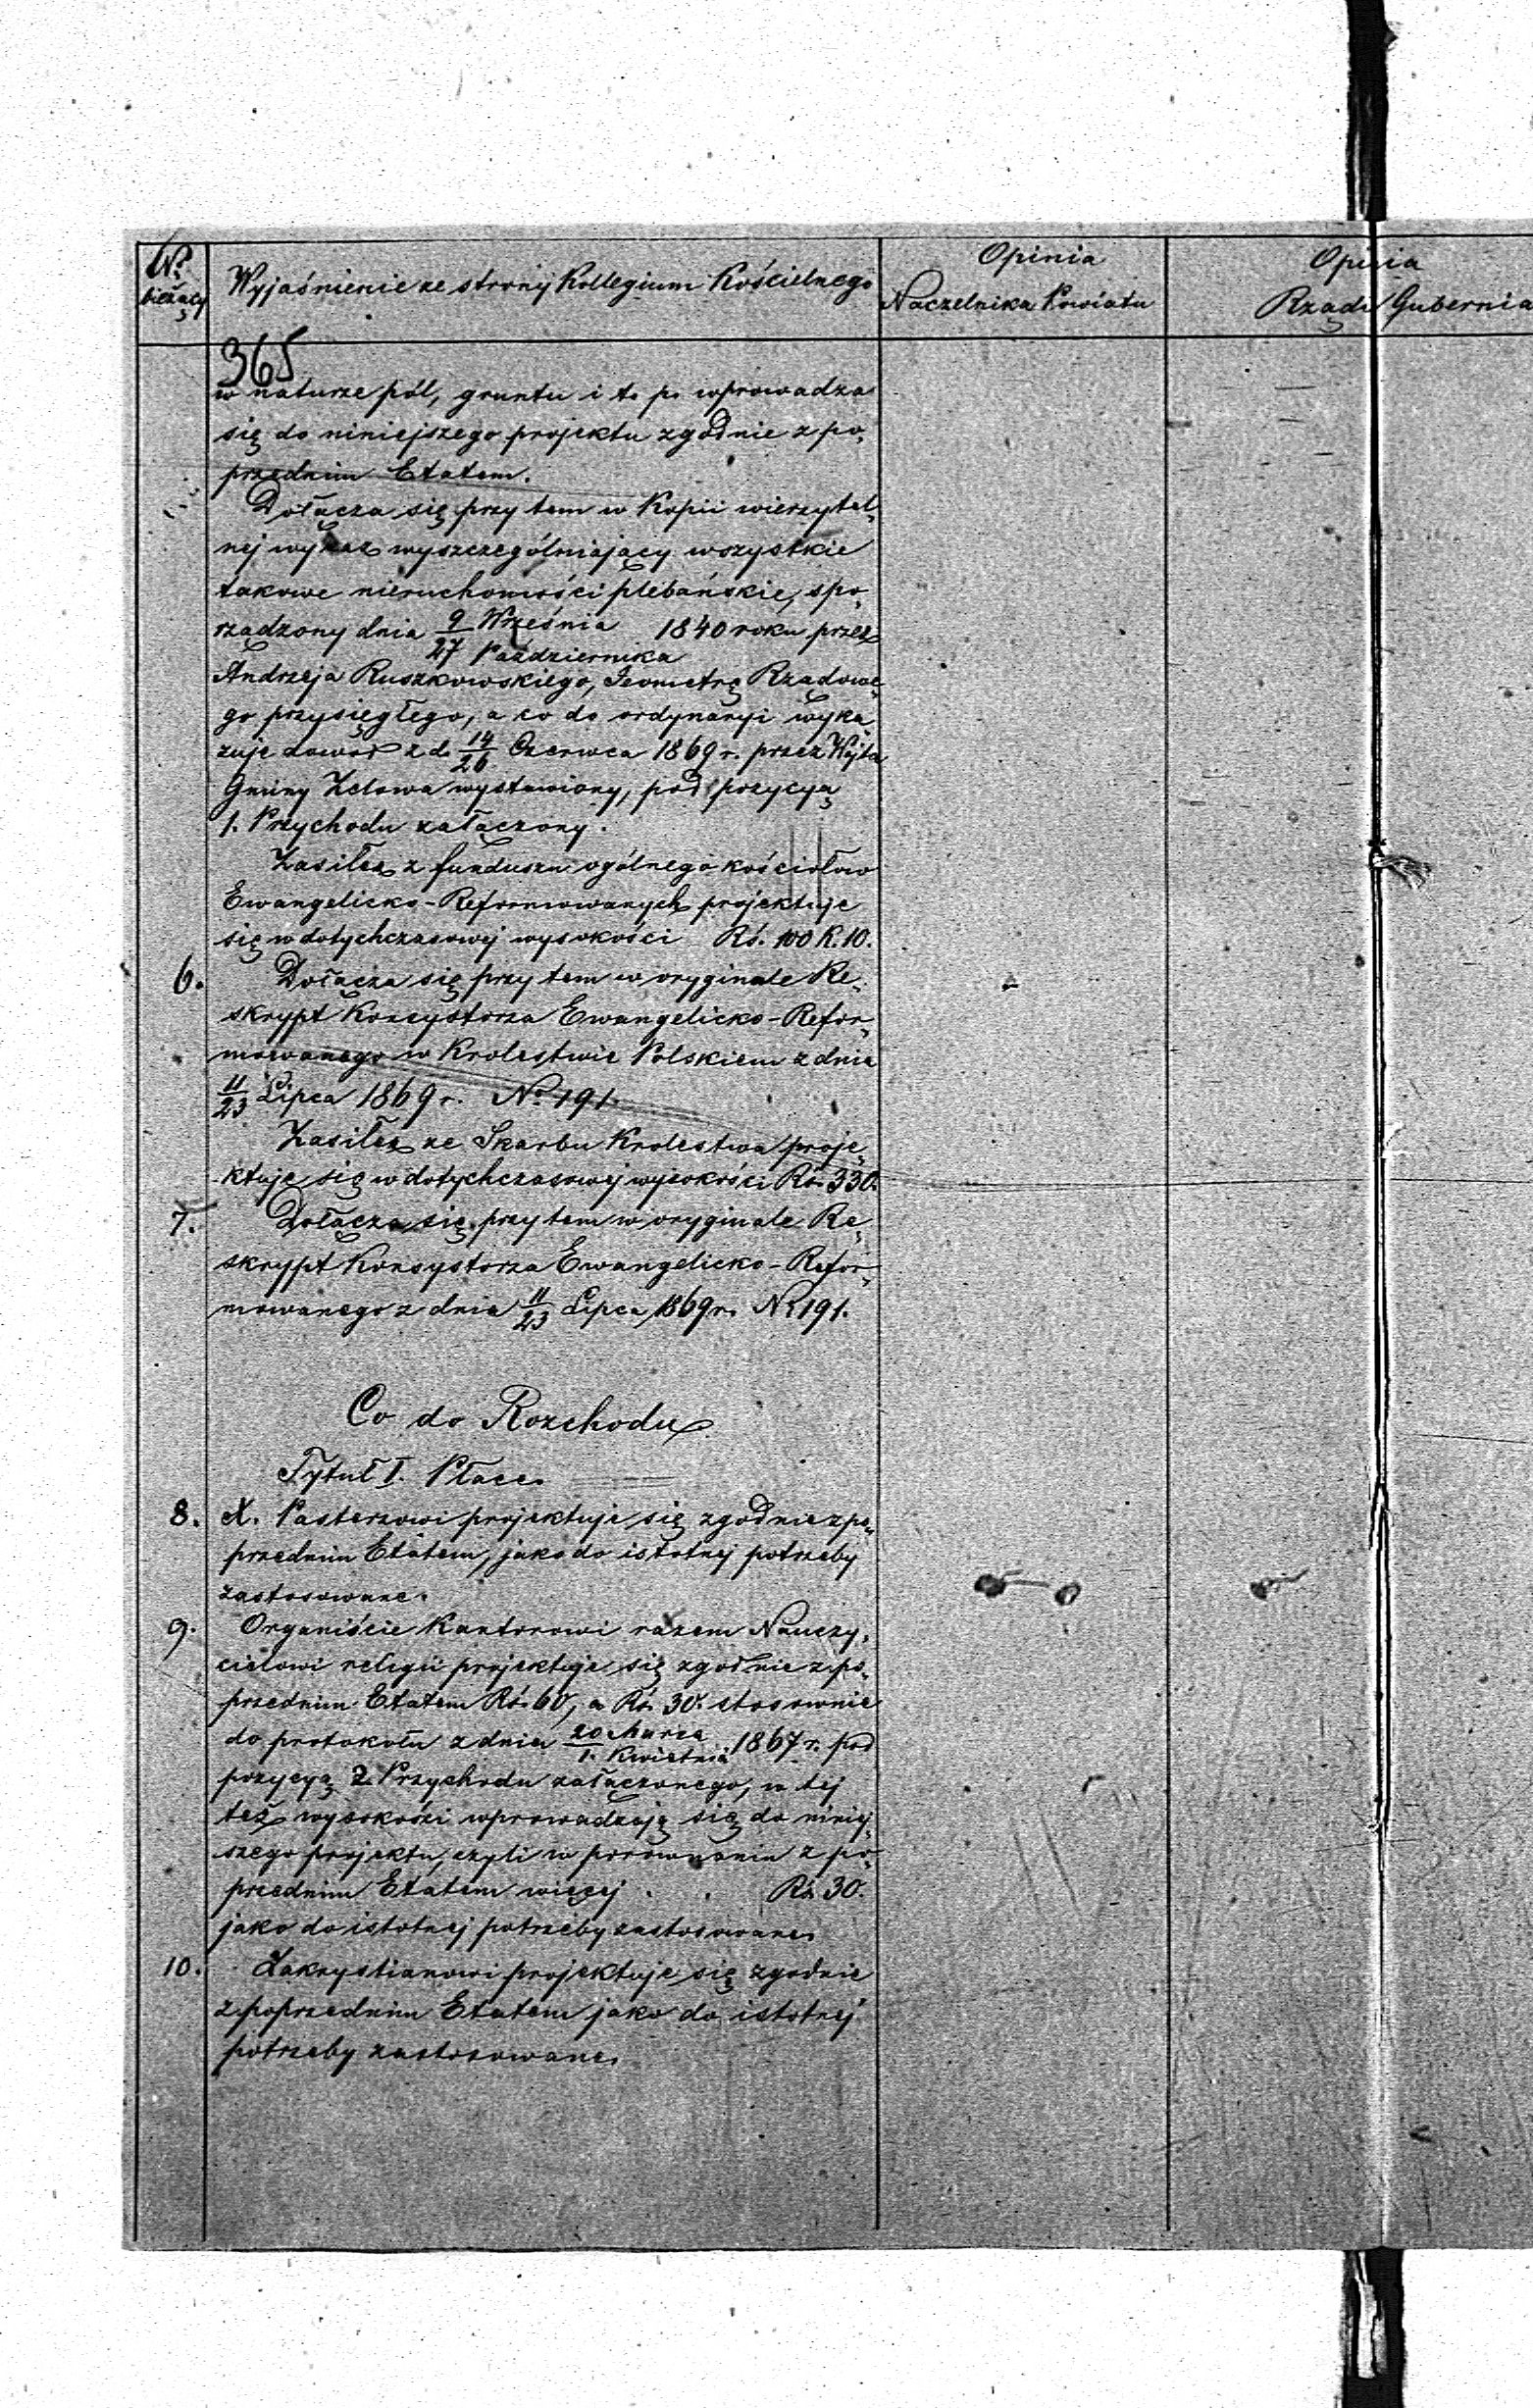 No bieżący
Wyjaśnienie ze strony Kollegium Kościelnego
Opinia
Naczelnika Powiatu
Opinia
Rządu Gubernia
365
w naturze pól, gruntu i t. p. wprowadza
się do niniejszego projektu zgodnie z po„
przednim Etatem.
Dołącza się przy tem w Kopii wierzytel„
nej wykaz wyszczególniający wszystkie
takowe nieruchomości plebańskie, spo„
rządzony dnia 9 Września / 27 Października 1840 roku przez
Andrzeja Ruszkowskiego, Jeometrę Rządowe„
go przysięgłego, a co do ordynaryi wyka„
zuje dowód z d. 14/26 Czerwca 1869 r. przez Wójta
Gminy Zelowa wystawiony, pod pozycyą
1. Przychodu załączony.
Zasiłek z funduszu ogólnego kościołów
Ewangelicko-Reformowanych projektuje
się w dotychczasowej wysokości Rś. 100 K. 10.
6. Dołącza się przy tem w oryginale Re„
skrypt Konsystorza Ewangelicko-Refor„
mowanego w Krolestwie Polskiem z dnia
11/23 Lipca 1869 r. No 191.
Zasiłek ze Skarbu Krolestwa proje„
ktuje się w dotychczasowej wysokości Rś. 330.
7. Dołącza się przy tem w oryginale Re„
skrypt Konsystorza Ewangelicko-Refor„
mowanego z dnia 11/23 Lipca 1869 r. No 191.
Co do Rozchodu
Tytuł I. Płace.
8. X. Pasterzowi projektuje się zgodnie z po„
przednim Etatem, jako do istotnej potrzeby
zastosowane.
9. Organiście Kantorowi razem Nauczy„
cielowi religii projektuje się zgodnie z po„
przednim Etatem Rś. 60, a Rś. 30. stosownie
do protokołu z dnia 20 Marca / 1. Kwietnia 1867 r. pod
pozycyą 2. Przychodu załączonego, w tej
też wysokości wprowadzają się do niniej„
szego projektu, czyli w porównaniu z po„
przednim Etatem więcej . . Rś. 30.
jako do istotnej potrzeby zastosowane.
10. Zakrystianowi projektuje się zgodnie
z poprzednim Etatem jako do istotnej
potrzeby zastosowane.